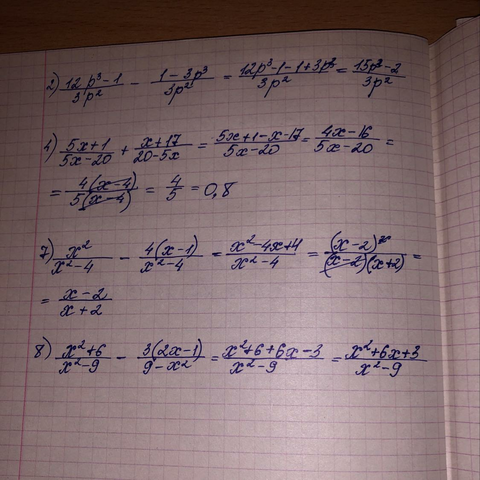 2) (12p³-1)/(3p²) - (1-3p³)/(3p²) = (12p³-1-1+3p³)/(3p²) = (15p³-2)/(3p²)
4) (5x+1)/(5x-20) + (x+17)/(20-5x) = (5x+1-x-17)/(5x-20) = (4x-16)/(5x-20) =
= (4(x-4))/(5(x-4)) = 4/5 = 0,8
7) x²/(x²-4) - (4(x-1))/(x²-4) = (x²-4x+4)/(x²-4) = (x-2)²/((x-2)(x+2)) =
= (x-2)/(x+2)
8) (x²+6)/(x²-9) - (3(2x-1))/(9-x²) = (x²+6+6x-3)/(x²-9) = (x²+6x+3)/(x²-9)